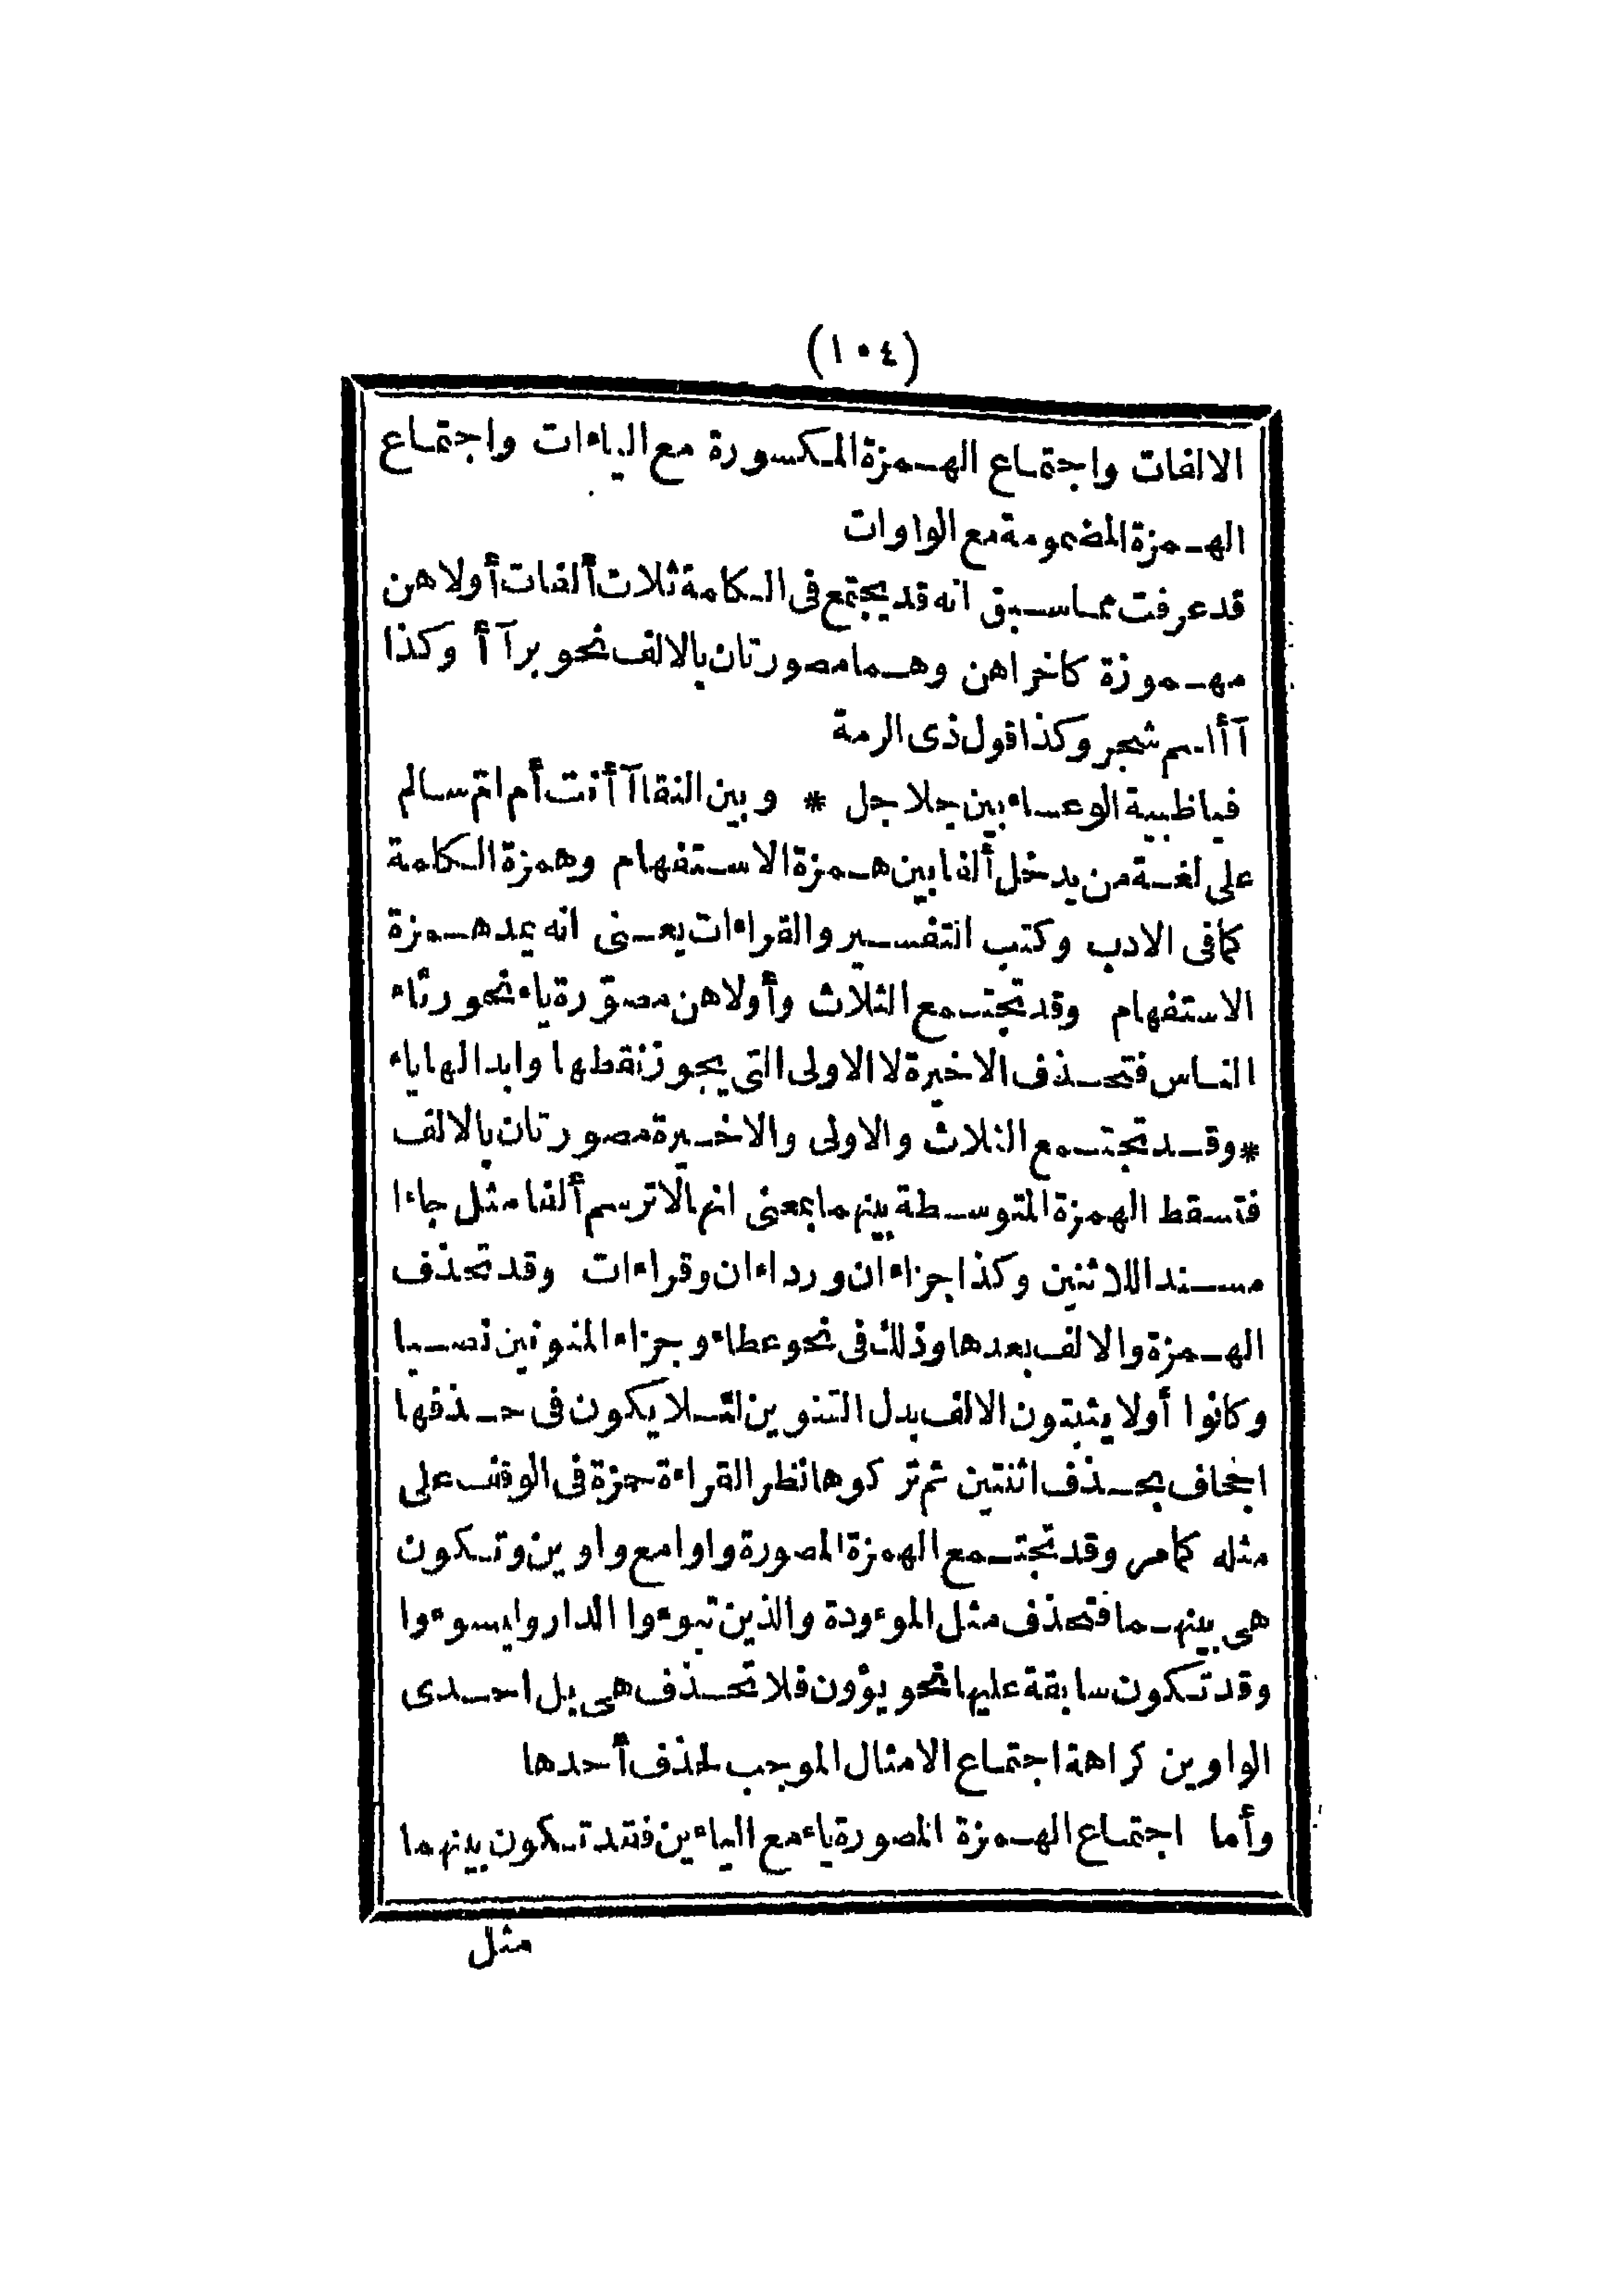 (١٠٤)
الالفات واجتماع الهمزة المكسورة مع الياءات واجتماع
الهمزة المضمومة مع الواوات
قد عرفت مما سبق انه قد يجتمع فى الكلمة ثلاث ألفات أولاهن
مهموزة كاخراهن وهما مصورتان بالالف نحو برآأ وكذا
آأ اسم شجر وكذا قول ذى الرمة
فياظبية الوعساء بين جلاجل * وبين النقا آأنت أم ام سالم
على لغة من يدخل ألفا بين همزة الاستفهام وهمزة الكلمة
كمافى الادب وكتب التفسير والقراءات يعنى انه يمد همزة
الاستفهام وقد تجتمع الثلاث وأولاهن مصوّرة ياء نحو رئاء
الناس فتحذف الاخيرة لا الاولى التى يجوز نقطها وابدالها ياء
* وقد تجتمع الثلاث والاولى والاخيرة مصورتان بالالف
فتسقط الهمزة المتوسطة بينهما بمعنى انها لا ترسم ألفا مثل جاءا
مسندا للاثنين وكذا جزاءان ورداءان وقراءات وقد تحذف
الهمزة والالف بعدها وذلك فى نحو عطاء وجزاء المنونين نصبا
وكانوا أولا يثبتون الالف بدل التنوين لئلا يكون فى حذفها
اجحاف بحذف اثنتين ثم تركوها نظر القراءة حمزة فى الوقف على
مثله كمامر وقد تجتمع الهمزة المصورة واوا مع واوين وتكون
هى بينهما فتحذف مثل الموءودة والذين تبوءوا الدار وليسوءوا
وقد تكون سابقة عليها نحو يؤون فلا تحذف هى بل احدى
الواوين كراهة اجتماع الامثال الموجب لحذف أحدها
وأما اجتماع الهمزة المصورة ياء مع الياءين فقد تكون بينهما
مثل